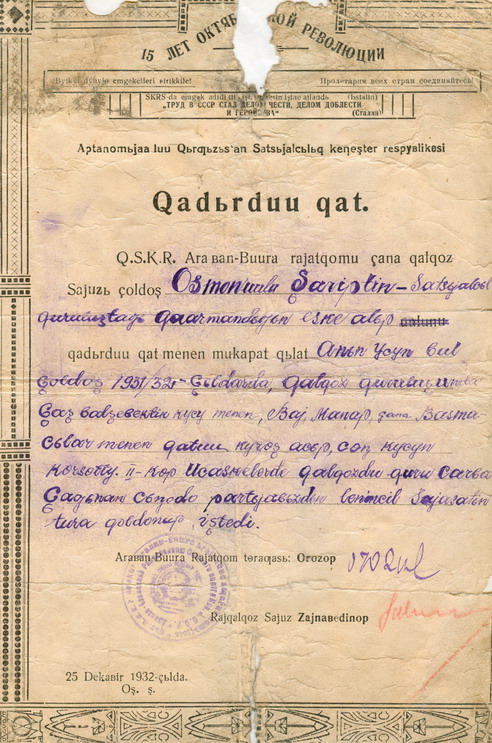 15 ЛЕТ ОКТЯБ СКОЙ РЕВОЛЮЦИИ
emgekcileri birikkile! Пролетарии всех стран соединяйтесь!
SKRS-da emgek (Istalin)
„ТРУД В СССР СТАЛ ДЕЛОМ ЧЕСТИ, ДЕЛОМ ДОБЛЕСТИ
И ГЕРОЙ ВА" (Сталин)
Aptanomьjaa luu Qьrƣьzs'an Satsьjalcьlьq keꞑeşter respyвlikesi
Qadьrduu qat.
Q.S.K.R. Araвan-Buura rajatqomu çana qalqoz
Sajuzь çoldoş Osmonuulu Şariptin – Satsyalcьl
quruluştaƣь qaarmandьƣьn eske alьp
qadьrduu qat menen mukapat qьlat Anьn ycyn bul
Çoldoş 1931/32 Çьldarda, qalqoz quruluşunda
Çaş balşeвektin kycy menen, Baj, Manap, çana Basma
cьlar menen qatuu kyrөş acьp, coꞑ kycyn
kөrsөtty. II- kөp Ucaskelerde qalqozdu quru carвa
partyaвьzdьn lenincil sajasatьn
tura qoldonup, iştedi.
Araвan-Buura Rajatqom tөraqasь: Orozoр
Rajqalqoz Sajuz Zajnaвedinoр
25 Dekaвir 1932-çьlda.
Oş. ş.